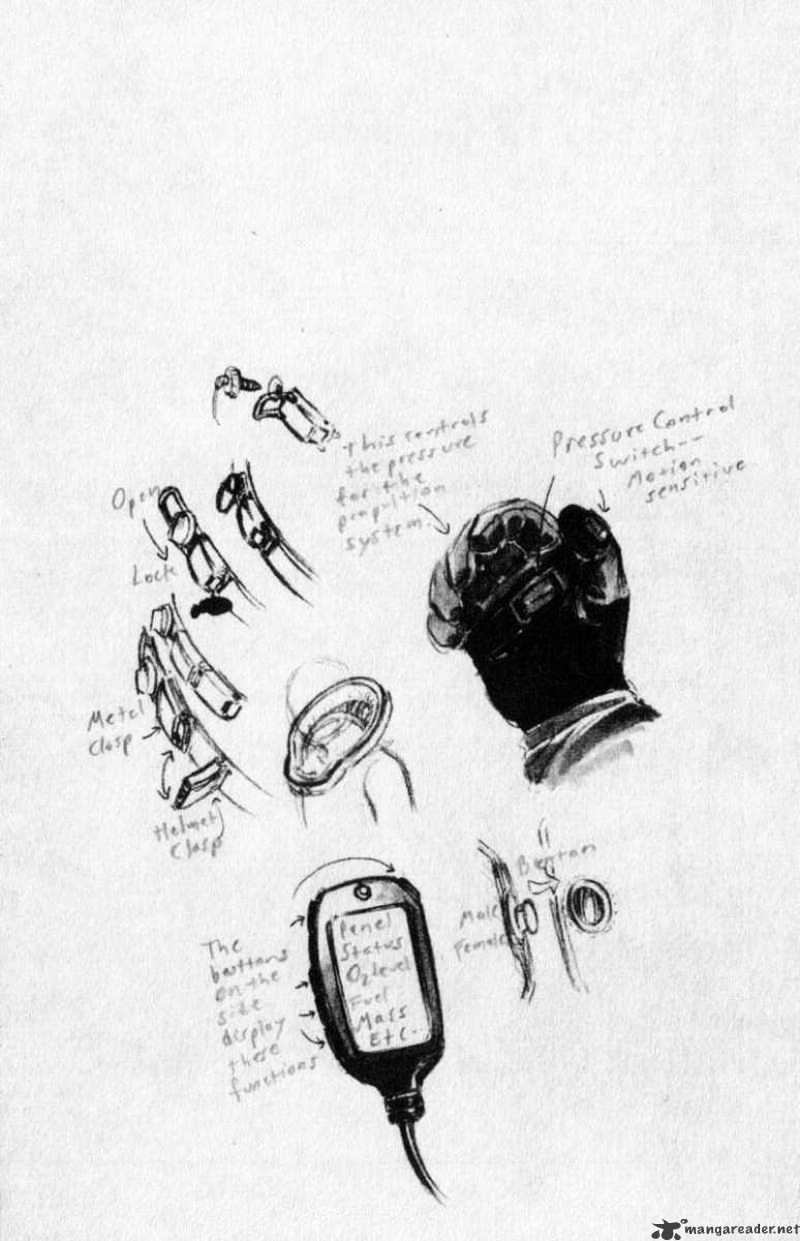 This controls
the pressure
for the
propultion
system.
Pressure Control
Switch--
Motion
sensitive
Open
Lock
Metal
Clasp
Helmet
Clasp
Button
Male
Female
The
buttons
on the
side
display
these
functions
Panel
Status
O2 level
Fuel
Mass
Etc.
mangareader.net